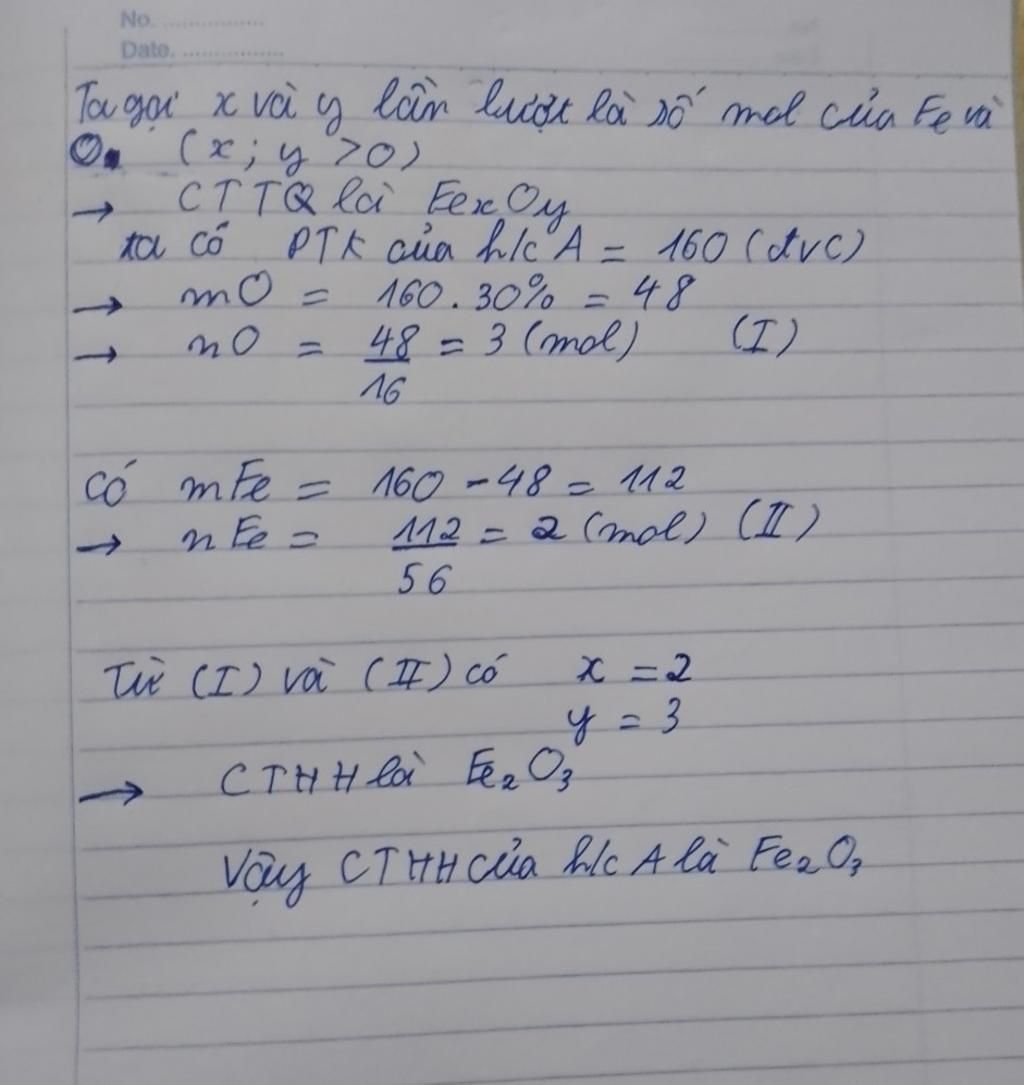 No. ................
Date. ................
Ta gọi x và y lần lượt là số mol của Fe và
O. (x; y >0)
→ CTTQ là FexOy
ta có PTK của h/c A = 160 (đvC)
→ mO = 160.30% = 48
→ nO = 48/16 = 3 (mol) (I)
có mFe = 160 - 48 = 112
→ nFe = 112/56 = 2 (mol) (II)
Từ (I) và (II) có x = 2
y = 3
→ CTHH là Fe₂O₃
Vậy CTHH của h/c A là Fe₂O₃